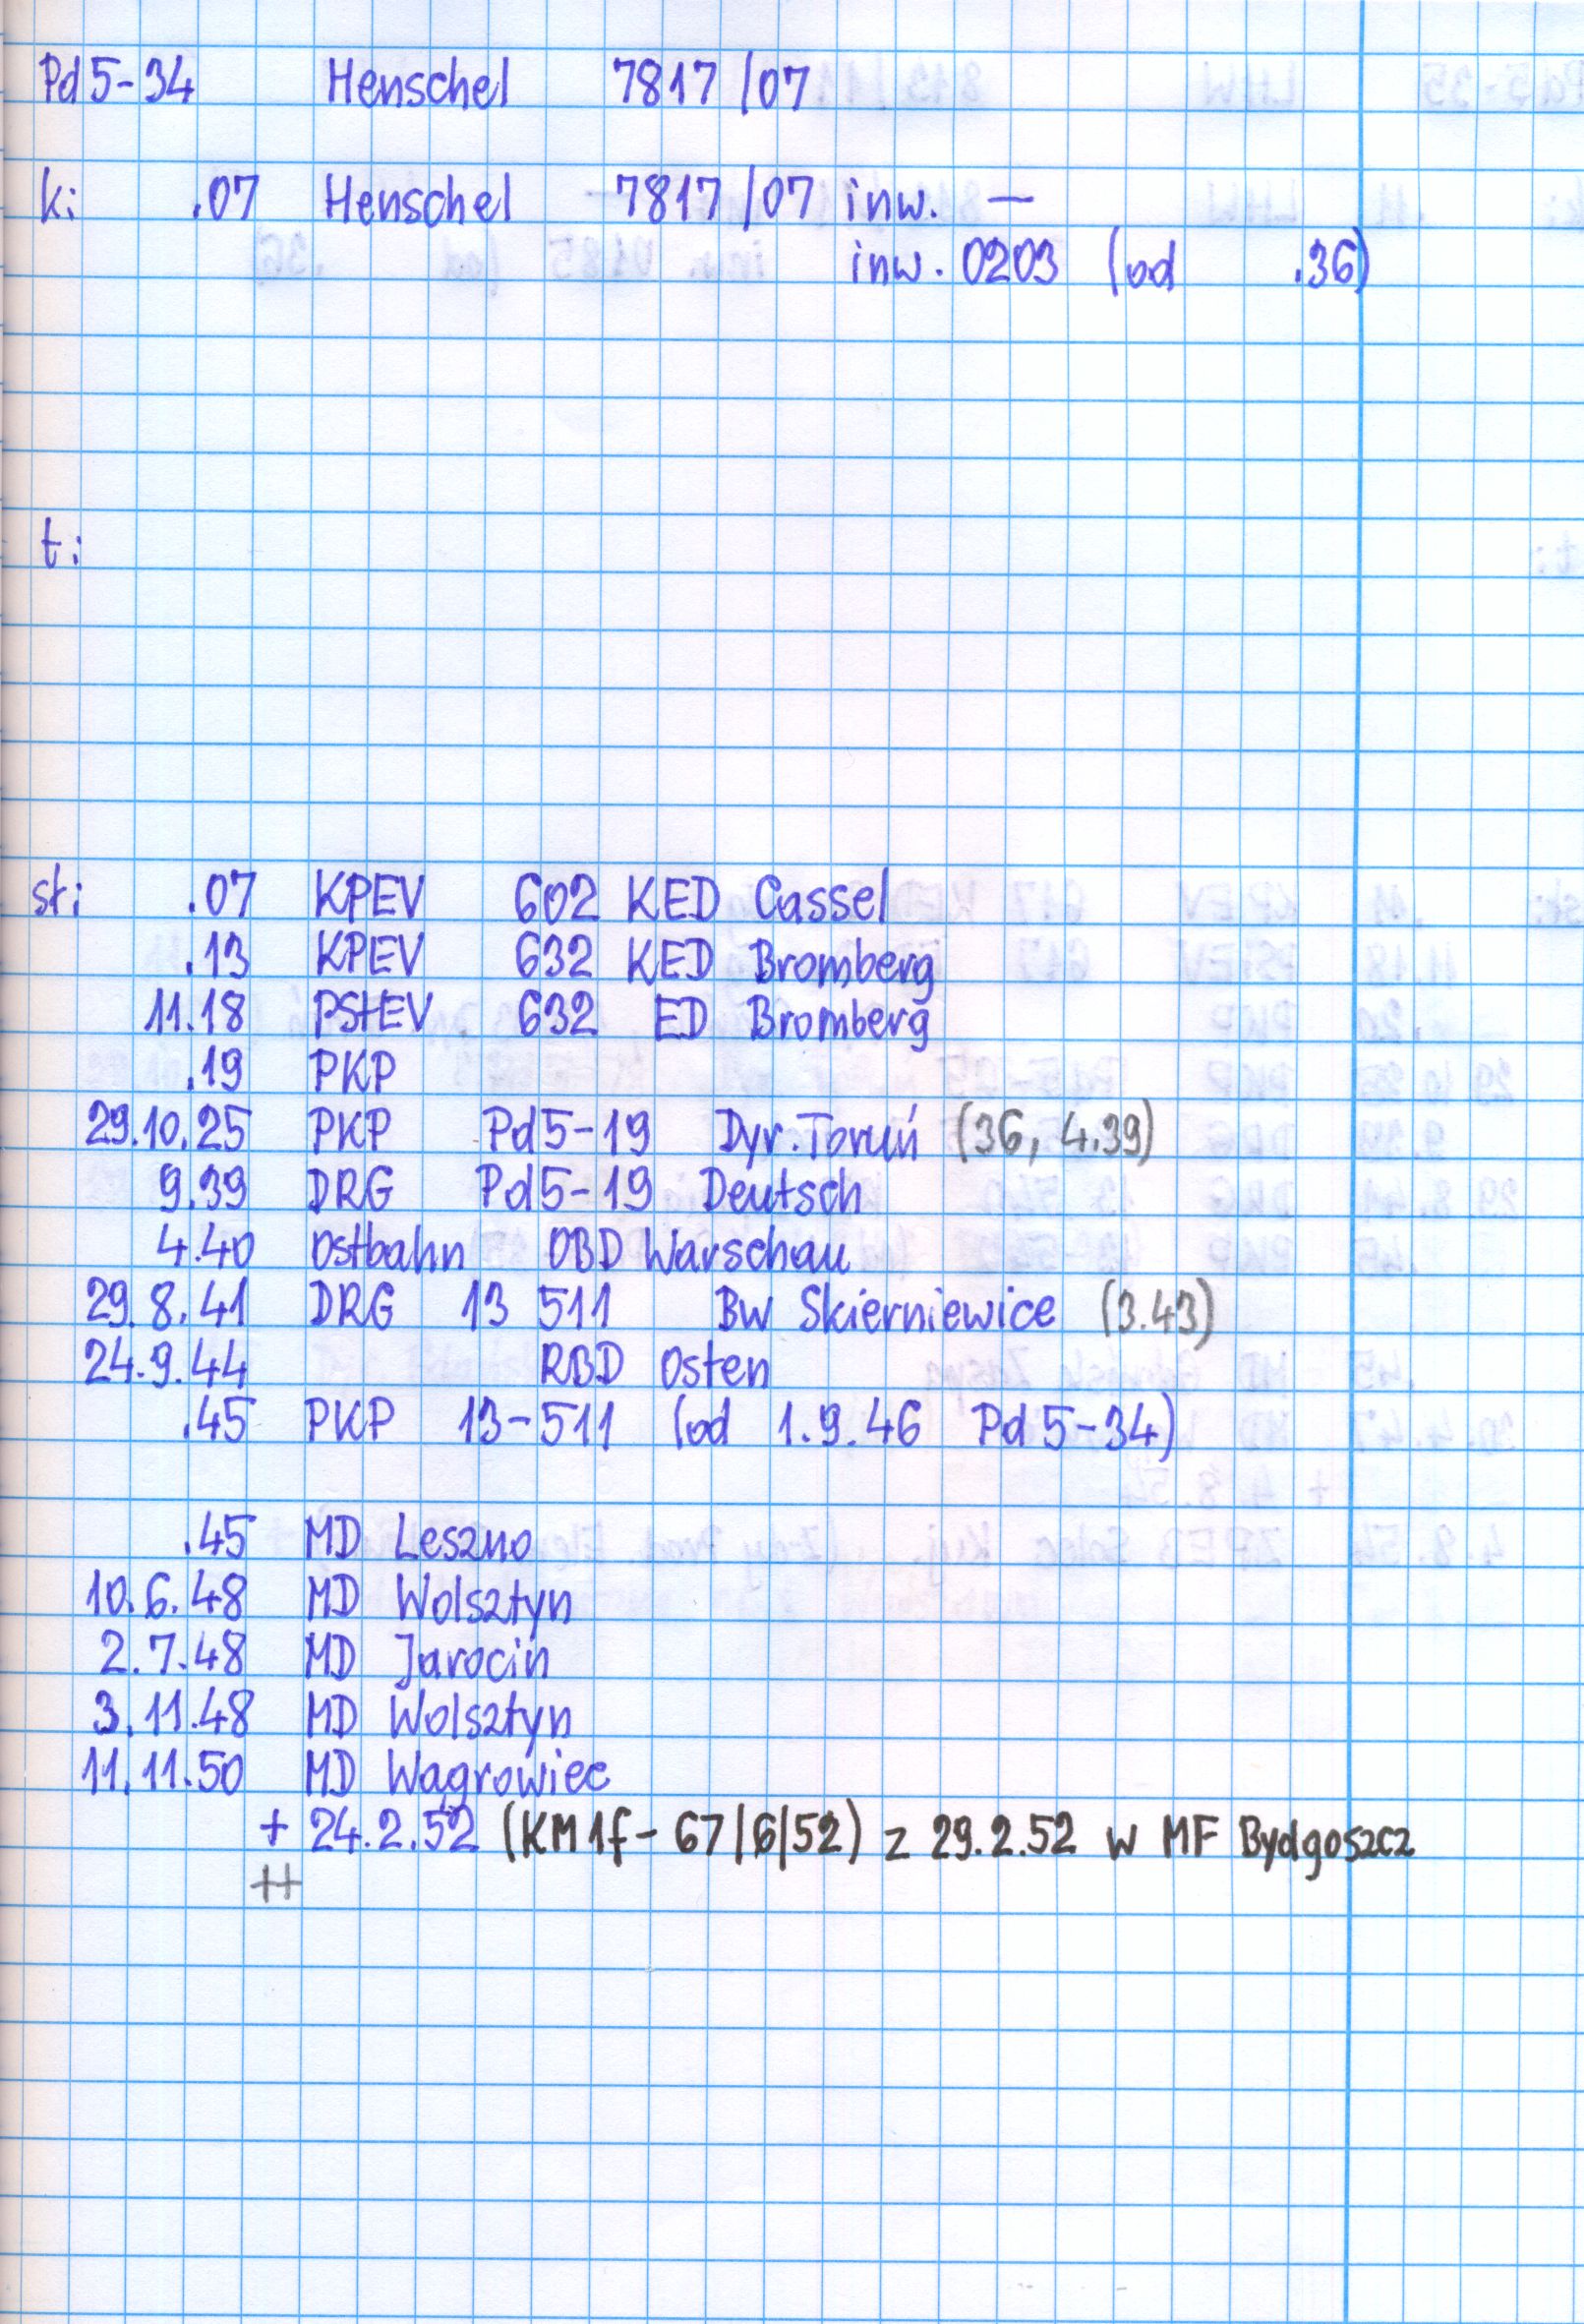 Pd5-34 Henschel 7817/07
k: .07 Henschel 7817/07 inw. —
inw. 0203 (od .36)
t:
st: .07 KPEV 602 KED Cassel
.13 KPEV 632 KED Bromberg
11.18 PStEV 632 ED Bromberg
.19 PKP
29.10.25 PKP Pd5-19 Dyr. Toruń (36, 4.39)
9.39 DRG Pd5-19 Deutsch
4.40 Ostbahn OBD Warschau
29.8.41 DRG 13 511 Bw Skierniewice (3.43)
24.9.44 RBD Osten
.45 PKP 13-511 (od 1.9.46 Pd5-34)
.45 MD Leszno
10.6.48 MD Wolsztyn
2.7.48 MD Jarocin
3.11.48 MD Wolsztyn
11.11.50 MD Wągrowiec
+ 24.2.52 (KM1f-67/6/52) z 29.2.52 w MF Bydgoszcz
++